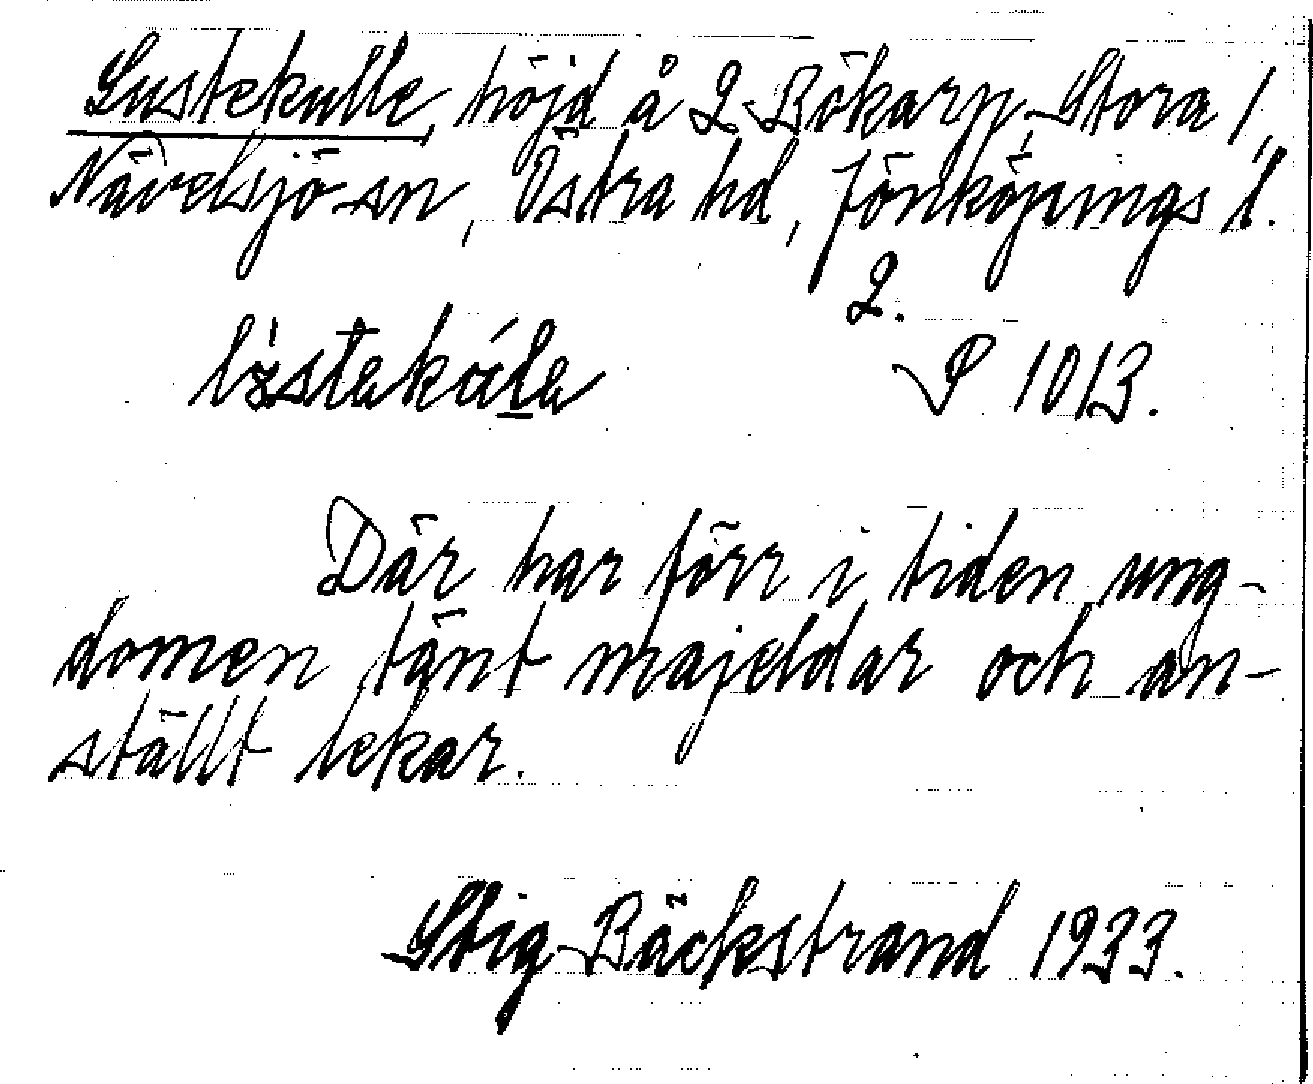 Lustekulle, höjd å 2 Bökarp, Stora 1,
Nävelsjö sn, Östra hd, Jönköpings l.
2.
P 1013.
Där har förr i tiden ung-
domen tänt majeldar och an-
ställt lekar.
Stig Bäckstrand 1933.